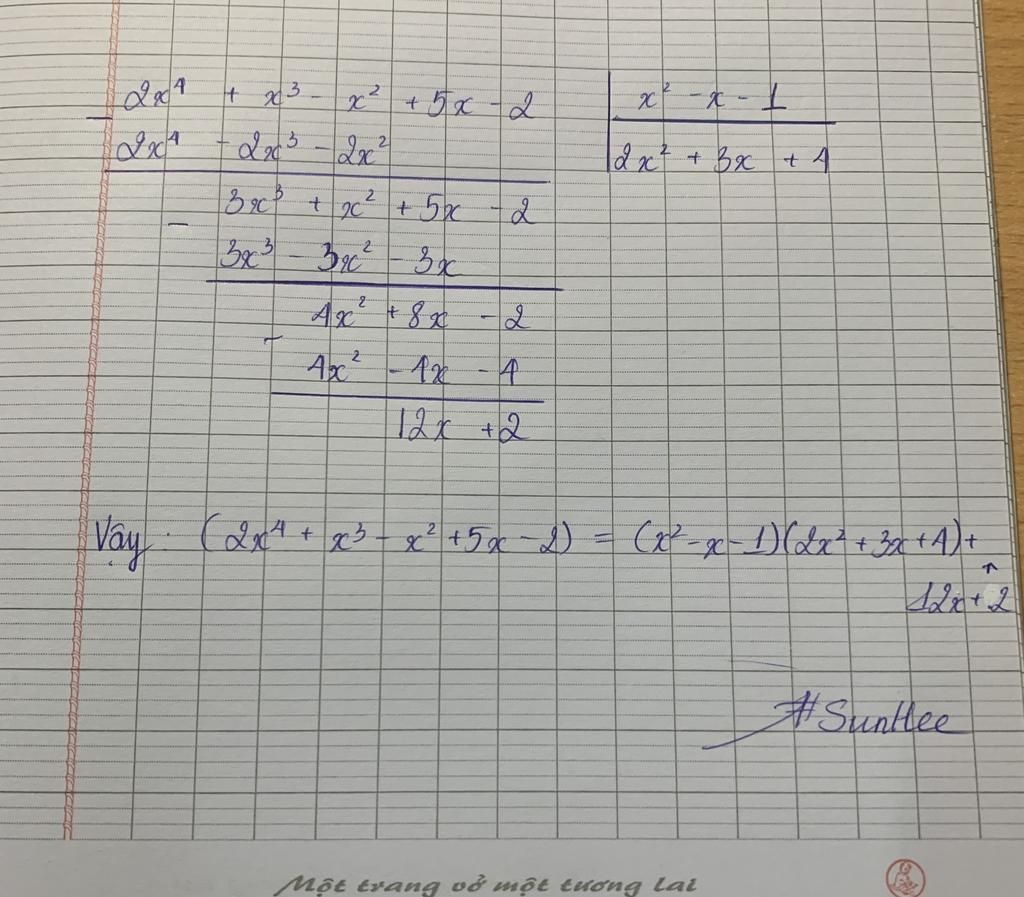 2x⁴ + x³ - x² + 5x - 2 | x² - x - 1
- 2x⁴ - 2x³ - 2x² | 2x² + 3x + 4
3x³ + x² + 5x - 2
- 3x³ - 3x² - 3x
4x² + 8x - 2
- 4x² - 4x - 4
12x + 2
Vậy: (2x⁴ + x³ - x² + 5x - 2) = (x² - x - 1)(2x² + 3x + 4) +
↑
12x + 2
#SunHee
Một trang vở một tương lai